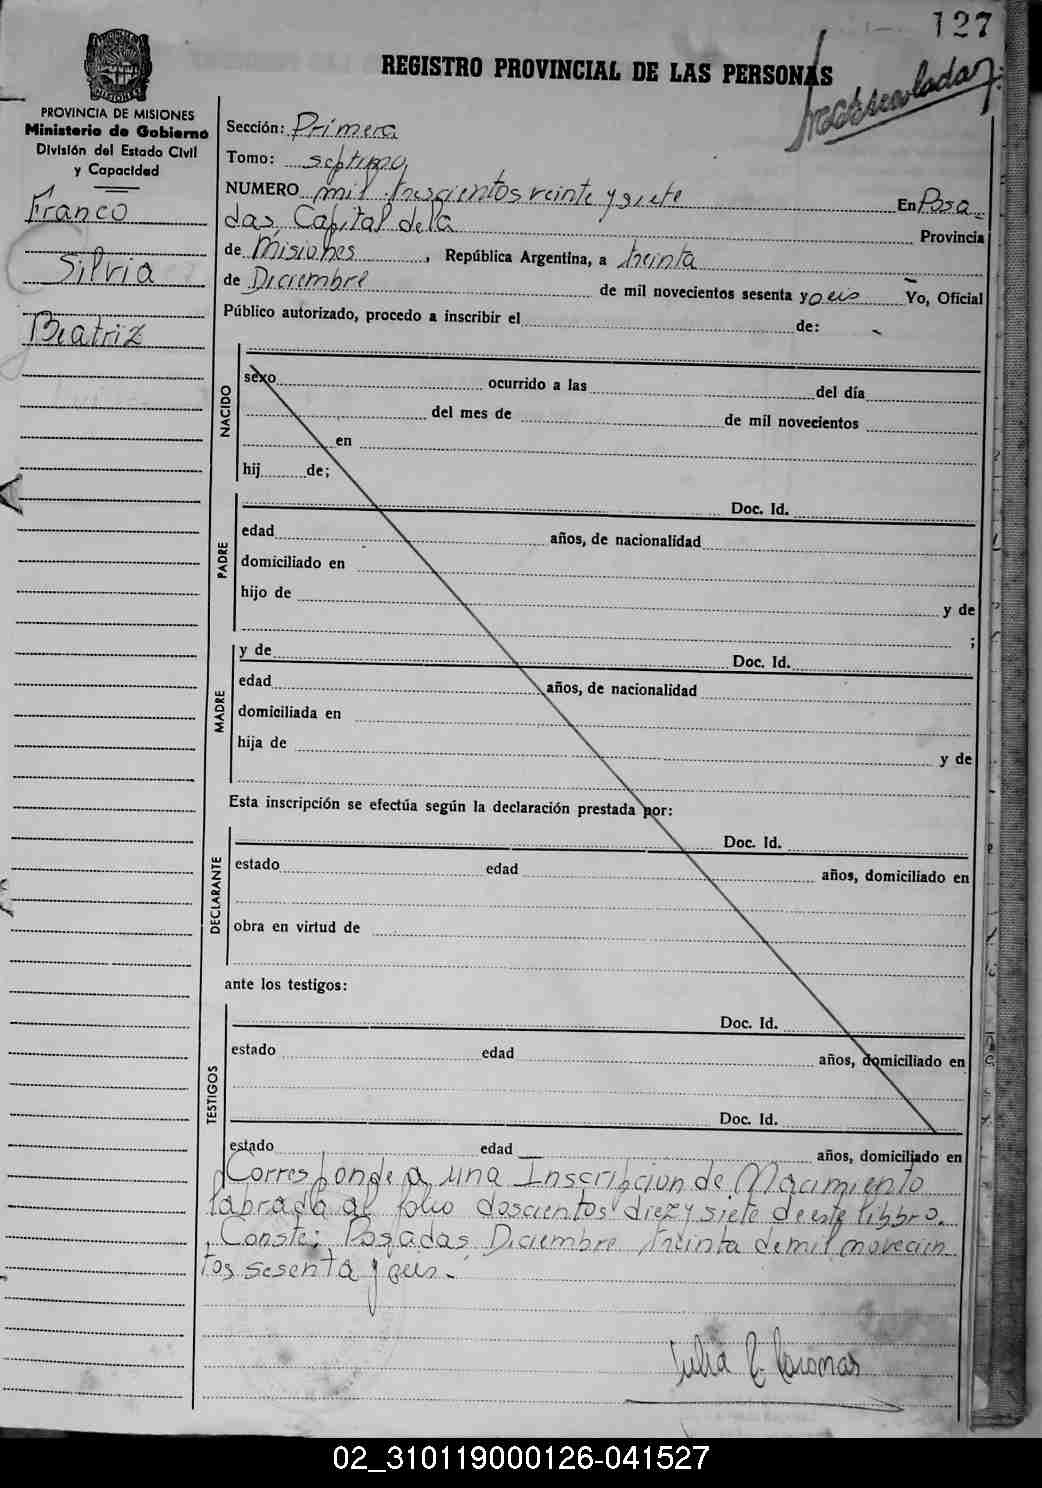 127
REGISTRO PROVINCIAL DE LAS PERSONAS
PROVINCIA DE MISIONES
Ministerio de Gobierno
División del Estado Civil
y Capacidad
Franco
Silvia
Beatriz
Sección: Primera
Tomo: septimo
NUMERO mil trescientos veinte y siete En Posa
das, Capital de la Provincia
de Misiones, República Argentina, a treinta
de Diciembre de mil novecientos sesenta y Yo, Oficial
Público autorizado, procedo a inscribir el de:
NACIDO
sexo ocurrido a las del día
del mes de de mil novecientos
en
hij de;
PADRE
Doc. Id.
edad años, de nacionalidad
domiciliado en
hijo de y de
;
MADRE
y de Doc. Id.
edad años, de nacionalidad
domiciliada en
hija de y de
Esta inscripción se efectúa según la declaración prestada por:
DECLARANTE
Doc. Id.
estado edad años, domiciliado en
obra en virtud de
ante los testigos:
TESTIGOS
Doc. Id.
estado edad años, domiciliado en
Doc. Id.
estado edad años, domiciliado en
Corresponde a una Inscripcion de Nacimiento
labrada al folio doscientos diez y siete de este libbro.
Conste: Posadas, Diciembre treinta de mil novecien
tos sesenta y
02_310119000126-041527